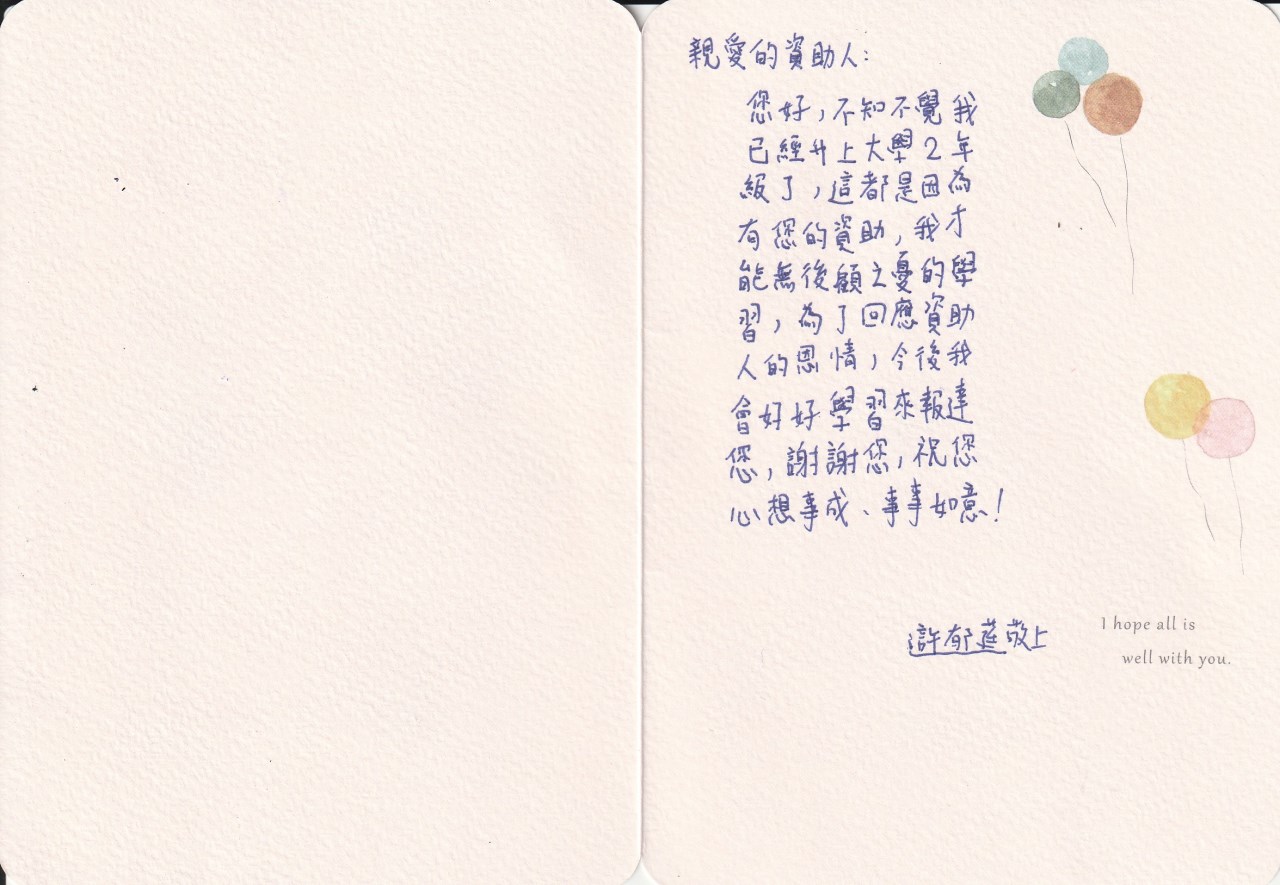 親愛的資助人：
您好，不知不覺我
已經升上大學2年
級了，這都是因為
有您的資助，我才
能無後顧之憂的學
習，為了回應資助
人的恩情，今後我
會好好學習來報達
您，謝謝您，祝您
心想事成、事事如意！
許郁 敬上
I hope all is
well with you.